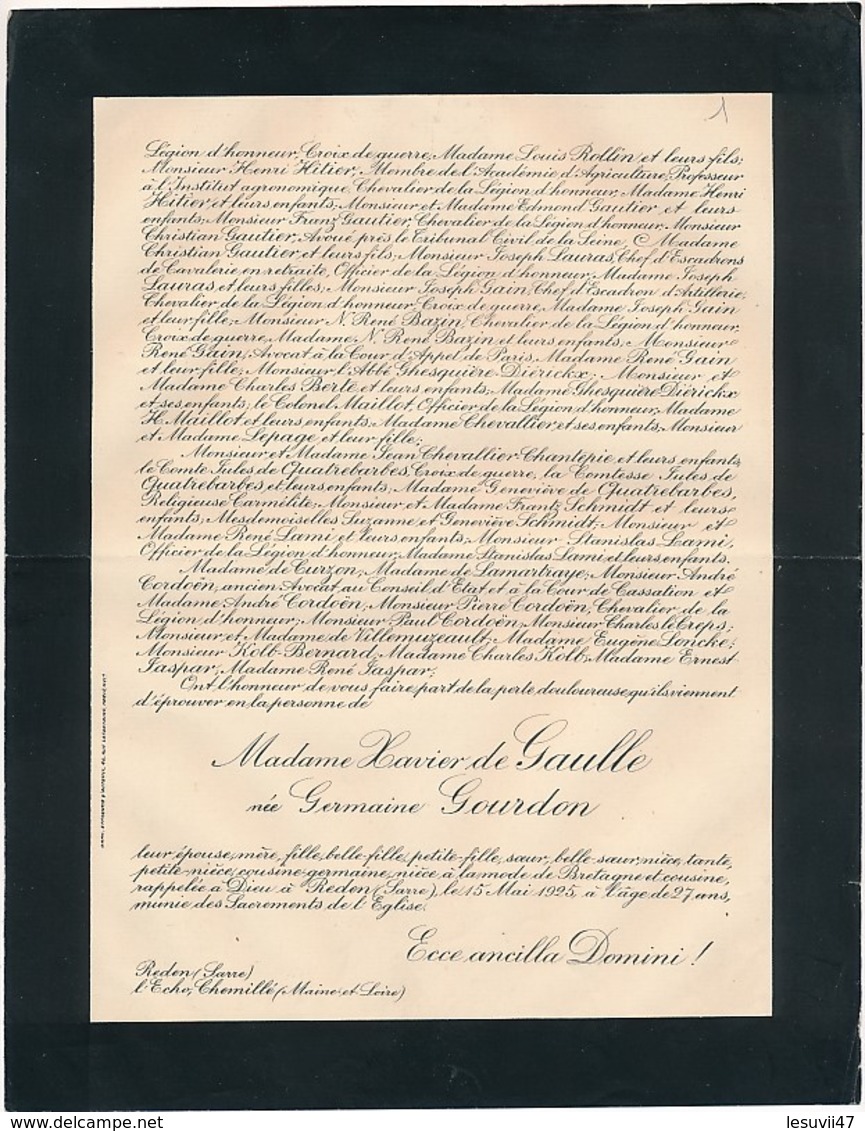 1
Légion d'honneur, Croix de guerre, Madame Louis Rollin et leurs fils;
Monsieur Henri Hitier, Membre de l'Académie d'Agriculture, Professeur
à l'Institut agronomique, Chevalier de la Légion d'honneur, Madame Henri
Hitier, et leurs enfants; Monsieur et Madame Edmond Gautier et leurs
enfants; Monsieur Franz Gautier, Chevalier de la Légion d'honneur; Monsieur
Christian Gautier, Avoué près le Tribunal Civil de la Seine, Madame
Christian Gautier et leurs fils; Monsieur Joseph Lauras, Chef d'Escadrons
de Cavalerie en retraite, Officier de la Légion d'honneur, Madame Joseph
Lauras et leurs filles; Monsieur Joseph Gain, Chef d'Escadron d'Artillerie,
Chevalier de la Légion d'honneur, Croix de guerre, Madame Joseph Gain
et leur fille; Monsieur N. René Bazin, Chevalier de la Légion d'honneur,
Croix de guerre, Madame N. René Bazin et leurs enfants; Monsieur
René Gain, Avocat à la Cour d'Appel de Paris, Madame René Gain
et leur fille; Monsieur l'Abbé Ghesquière-Diérickx; Monsieur et
Madame Charles Berle et leurs enfants; Madame Ghesquière-Diérickx
et ses enfants; le Colonel Maillot, Officier de la Légion d'honneur, Madame
H. Maillot et leurs enfants; Madame Chevallier et ses enfants; Monsieur
et Madame Lepage et leur fille;
Monsieur et Madame Jean Chevallier-Chantepie et leurs enfants;
le Comte Jules de Quatrebarbes, Croix de guerre, la Comtesse Jules de
Quatrebarbes et leurs enfants; Madame Geneviève de Quatrebarbes,
Religieuse Carmélite; Monsieur et Madame Frantz Schmidt et leurs
enfants; Mesdemoiselles Suzanne et Geneviève Schmidt; Monsieur et
Madame René Lami et leurs enfants; Monsieur Stanislas Lami,
Officier de la Légion d'honneur, Madame Stanislas Lami et leurs enfants.
Madame de Curzon; Madame de Lamartraye; Monsieur André
Cordoën, ancien Avocat au Conseil d'Etat et à la Cour de Cassation et
Madame André Cordoën; Monsieur Pierre Cordoën, Chevalier de la
Légion d'honneur; Monsieur Paul Cordoën; Monsieur Charles le Creps;
Monsieur et Madame de Villemuzeault; Madame Eugène Loncke;
Monsieur Kolb-Bernard; Madame Charles Kolb; Madame Ernest
Jaspar; Madame René Jaspar;
Ont l'honneur de vous faire part de la perte douloureuse qu'ils viennent
d'éprouver en la personne de
Madame Xavier de Gaulle
née Germaine Gourdon
leur épouse, mère, fille, belle-fille, petite-fille, sœur, belle-sœur, nièce, tante,
petite-nièce, cousine-germaine, nièce à la mode de Bretagne et cousine,
rappelée à Dieu à Reden (Sarre), le 15 Mai 1925, à l'âge de 27 ans,
munie des Sacrements de l'Eglise.
Ecce ancilla Domini !
Reden (Sarre)
l'Echo, Chemillé (Maine-et-Loire)
lesuvii47